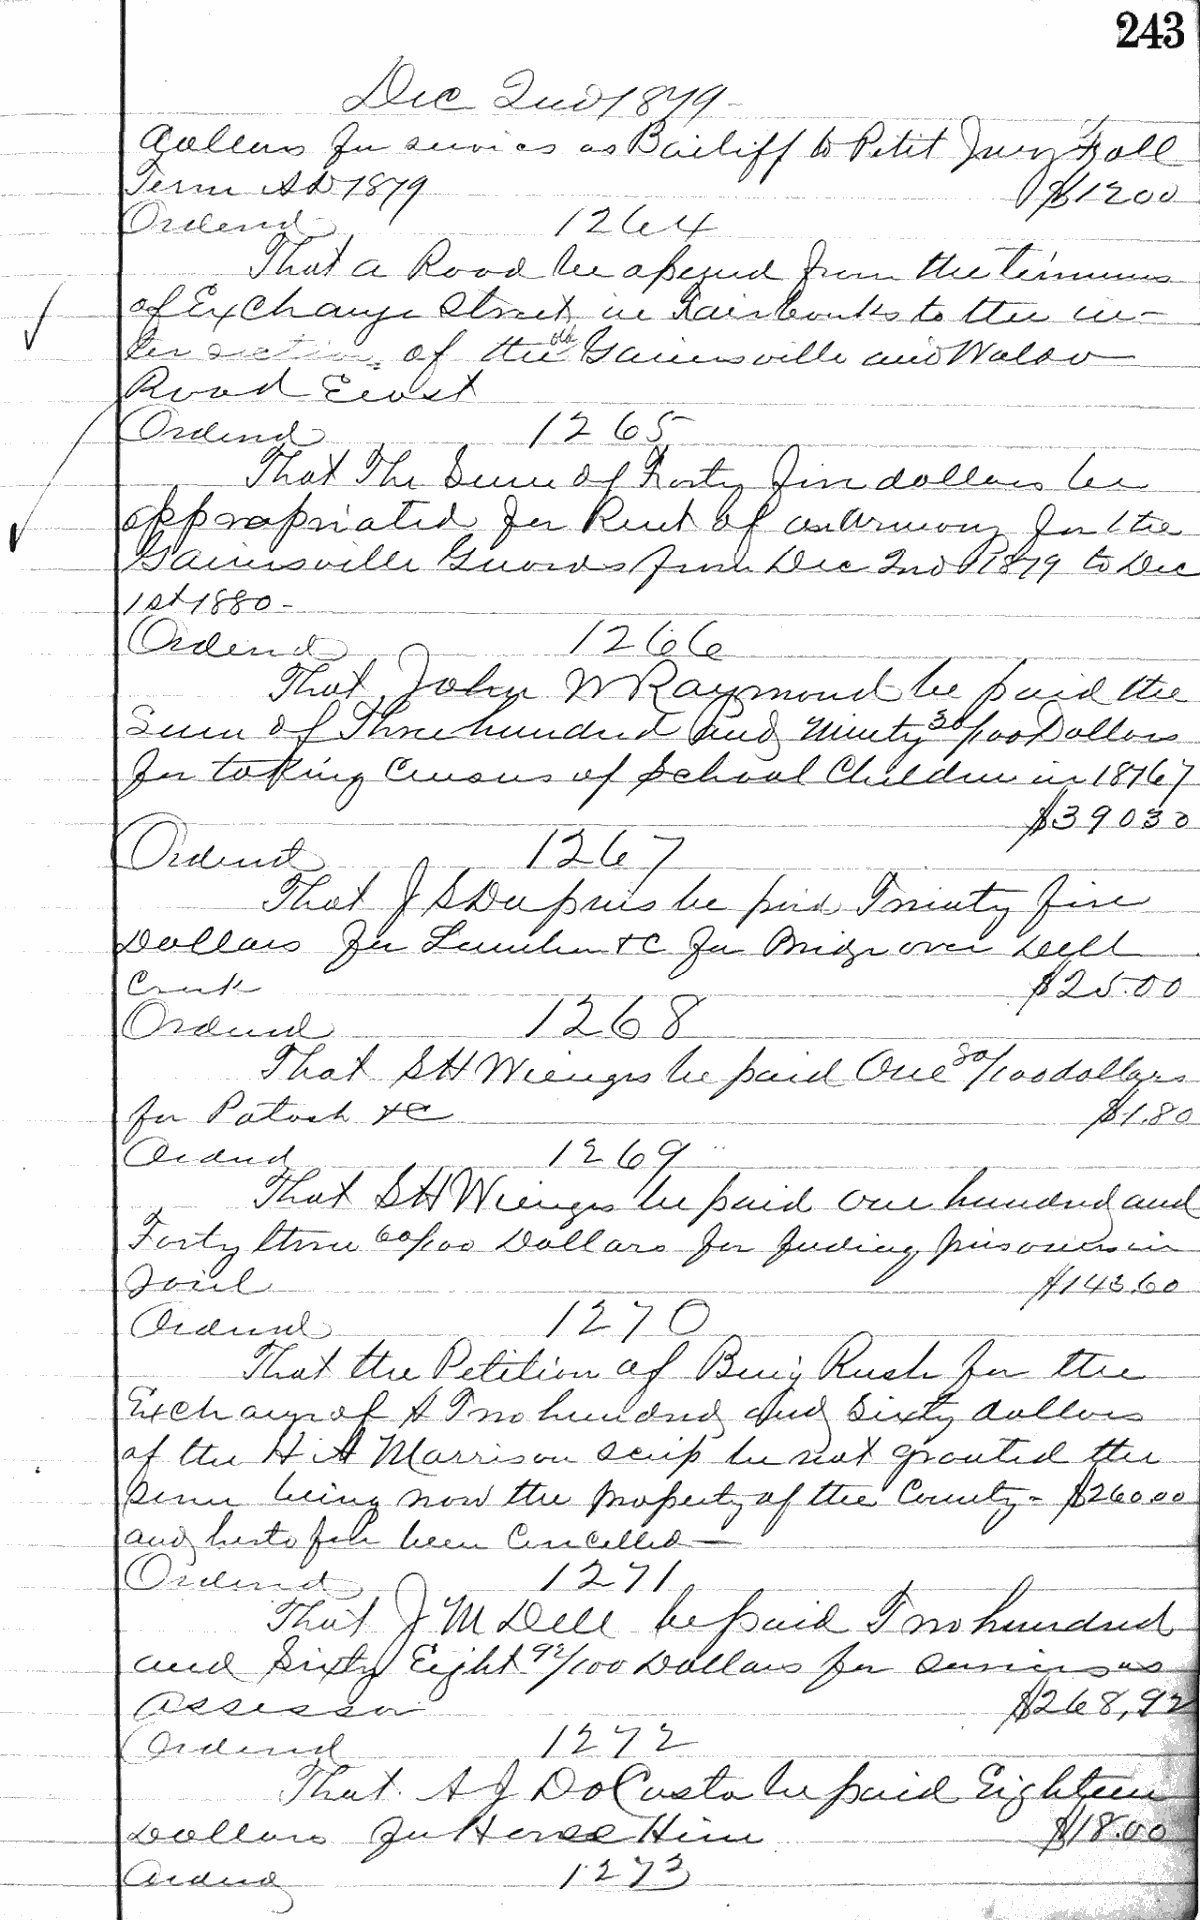 243
Dec 2nd 1879
dollars for services as Bailiff to Petit Jury Fall
Term AD 1879 $12 00
Ordered 1264
That a Road be opened from the terminus
of Exchange Street in Fairbanks to the in-
tersection of the old Gainesville and Waldo
Road East
Ordered 1265
That The Sum of Forty five dollars be
appropriated for Rent of an Armory for the
Gainesville Guards from Dec 2nd 1879 to Dec
1st 1880-
Ordered 1266
That John W Raymond be paid the
Sum of Three hundred and Ninety 30/100 Dollars
for taking Census of School Children in
$390 30
Ordered 1267
That J S Dupuis be paid Twenty five
Dollars for Lumber &C for Bridge over Dell
Creek $25.00
Ordered 1268
That S H Wienges be paid One 80/100 dollars
for Potash &C $1.80
Ordered 1269
That S H Wienges be paid One hundred and
Forty three 60/100 Dollars for feeding prisoners in
Jail $143.60
Ordered 1270
That the Petition of Benj Rush for the
Exchange of $ Two hundred and Sixty dollars
of the H A Marrison scrip be not granted the
same being now the property of the County - $260.00
and been Cancelled —
Ordered 1271
That J M Dell be paid Two hundred
and Sixty Eight 92/100 Dollars for services as
Assessor $268,92
Ordered 1272
That A J DaCosta be paid Eighteen
Dollars for Horse Hire $18.00
Ordered 1273